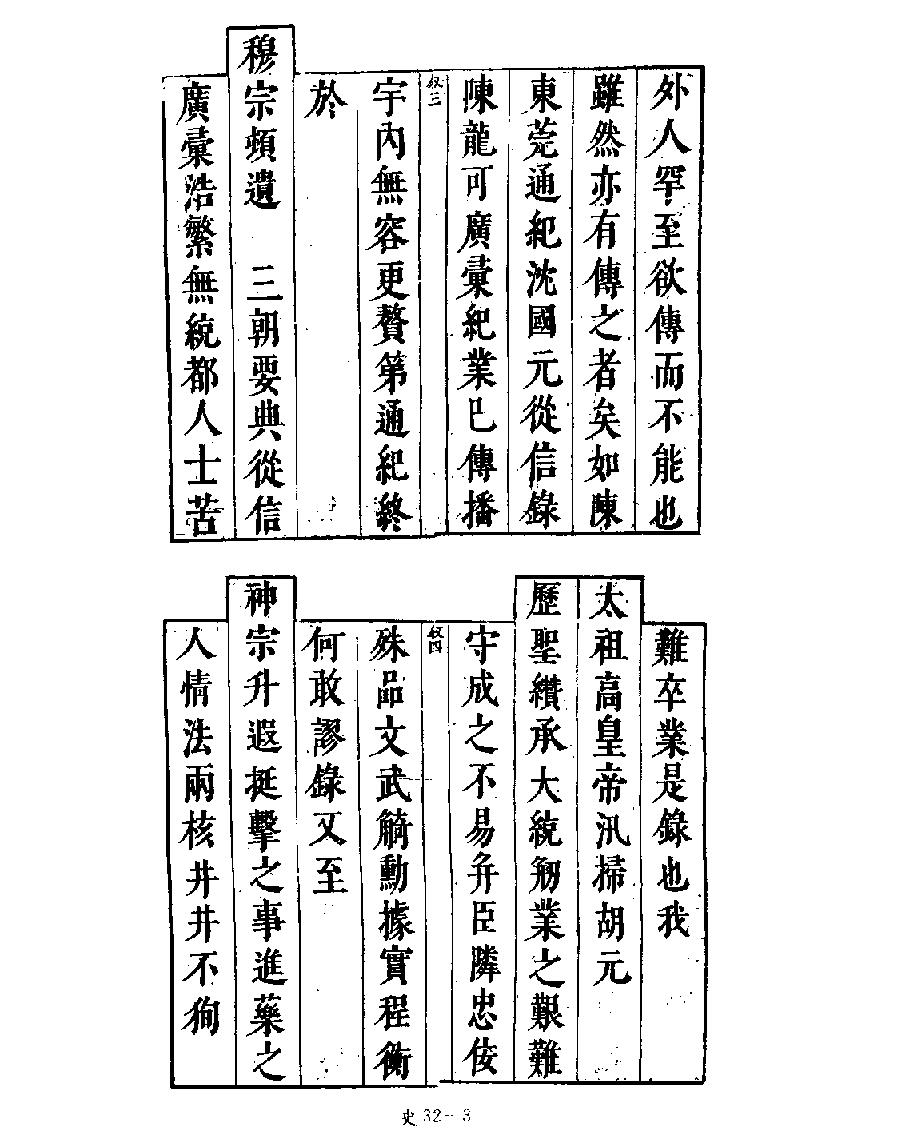 外人罕至欲傳而不能也
雖然亦有傳之者矣如陳
東莞通紀沈國元從信錄
陳龍可廣彙紀業已傳播
叙三
宇內無容更贅第通紀終
於
穆宗頻遺　三朝要典從信
廣彙浩繁無統都人士苦
難卒業是錄也我
太祖高皇帝汛掃胡元
歷聖纘承大統剏業之艱難
守成之不易弁臣隣忠佞
叙四
殊品文武觭勳據實程衡
何敢謬錄又至
神宗升遐挺擊之事進藥之
人情法兩核井井不狥
史 32-3